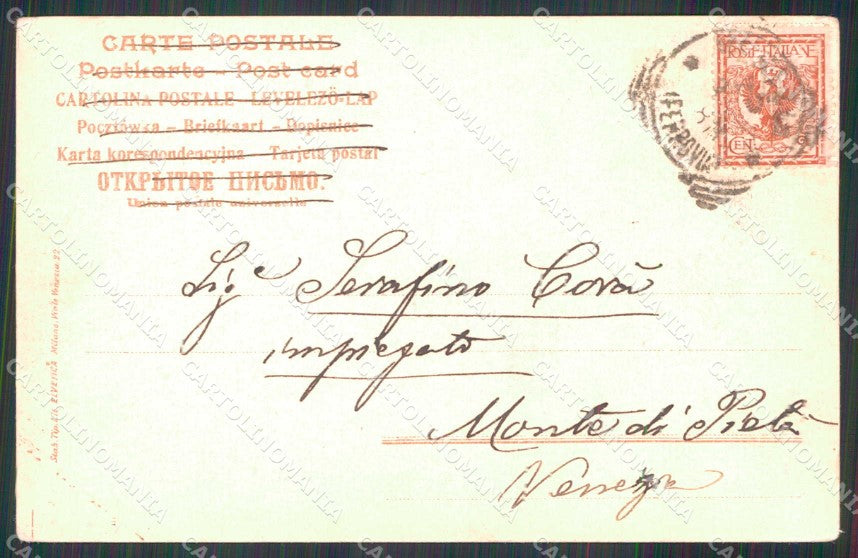 CARTE POSTALE
Postkarte – Post card
CARTOLINA POSTALE - LEVELEZÖ-LAP
Pocztówka – Briefkaart – Dopisnice
Karta korespondencyjna – Tarjeta postal
ОТКРЫТОЕ ПИСЬМО.
Union postale universelle
POSTE ITALIANE
CENT. 2
FERROVIA
Sigr Serafino Corà
impiegato
Monte di Pietà
Venezia
Stab. Tip. Lit. ELVETICA Milano, Viale Venezia 22
CARTOLINOMANIA